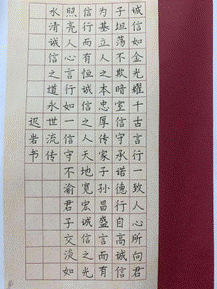 诚信如金光耀千古言行一致人心所向君
子坦荡不欺暗室信守承诺德行自高诚信
为基立人之本忠厚传家子孙昌盛言而有
信行而有恒诚信之人天地宽宏诚信之光
照亮人心言行如一信守不渝君子交淡如
水清诚信之道永世流传
迟岩书